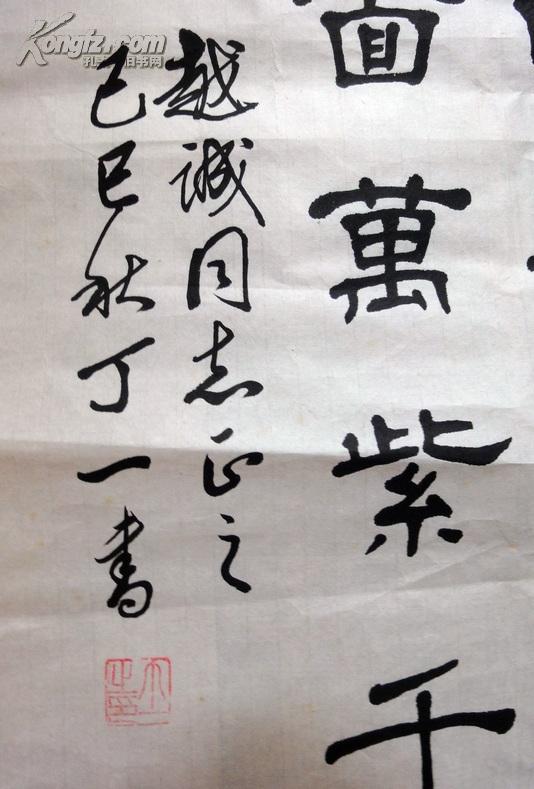 面萬紫千
越誠同志正之
己巳秋丁一書
Kongfz.com
孔夫子旧书网